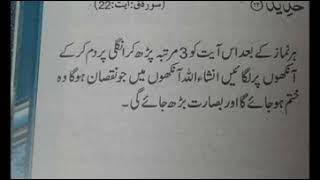 حدید (۲۳) (سورۃ ق: آیت: 22)
ہر نماز کے بعد اس آیت کو 3 مرتبہ پڑھ کر انگلی پر دم کر کے
آنکھوں پر لگائیں انشاء اللہ آنکھوں میں جو نقصان ہو گا وہ
ختم ہو جائے گا اور بصارت بڑھ جائے گی۔